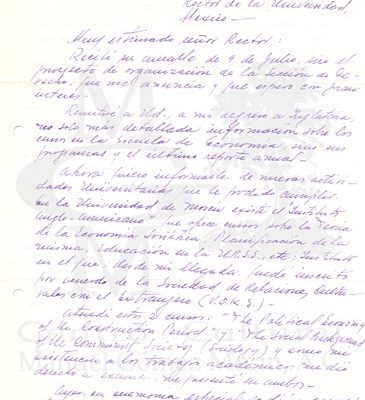 Rector de la Universidad,
Mexico —
Muy estimado señor Rector:
Recibí su amable de 9 de Julio, sin el
proyecto de organización de la Sección de De-
recho, que me anuncia y que espero con gran
interes.
Remitiré a Ud., a mi regreso a Inglaterra,
no solo más detallada información sobre los
cursos en la Escuela de economía, sino sus
programas y el último reporte anual.—
Ahora quiero informarle de nuevas activi-
dades Universitarias que he podido cumplir.
en la Universidad de Moscú existe el "Instituto
Anglo-Americano" que ofrece cursos sobre la Teoría
de la Economía Soviética, Planificación de la
misma, Educación en la U.R.S.S., etc; Instituto
en el que, desde mi llegada, quedé inscrito
por acuerdo de la Sociedad de Relaciones Cultu-
rales con el Extranjero (V.O.K.S.)—
Atendí estos 2 cursos: "The Political Economy
of the Construction Period" y "The Social Background
of the Community" (Sociology) y creo que mi
asistencia a los trabajos académicos, me dio
derecho a examen. me presenté en ambos—
Ayer, en ceremonia especial